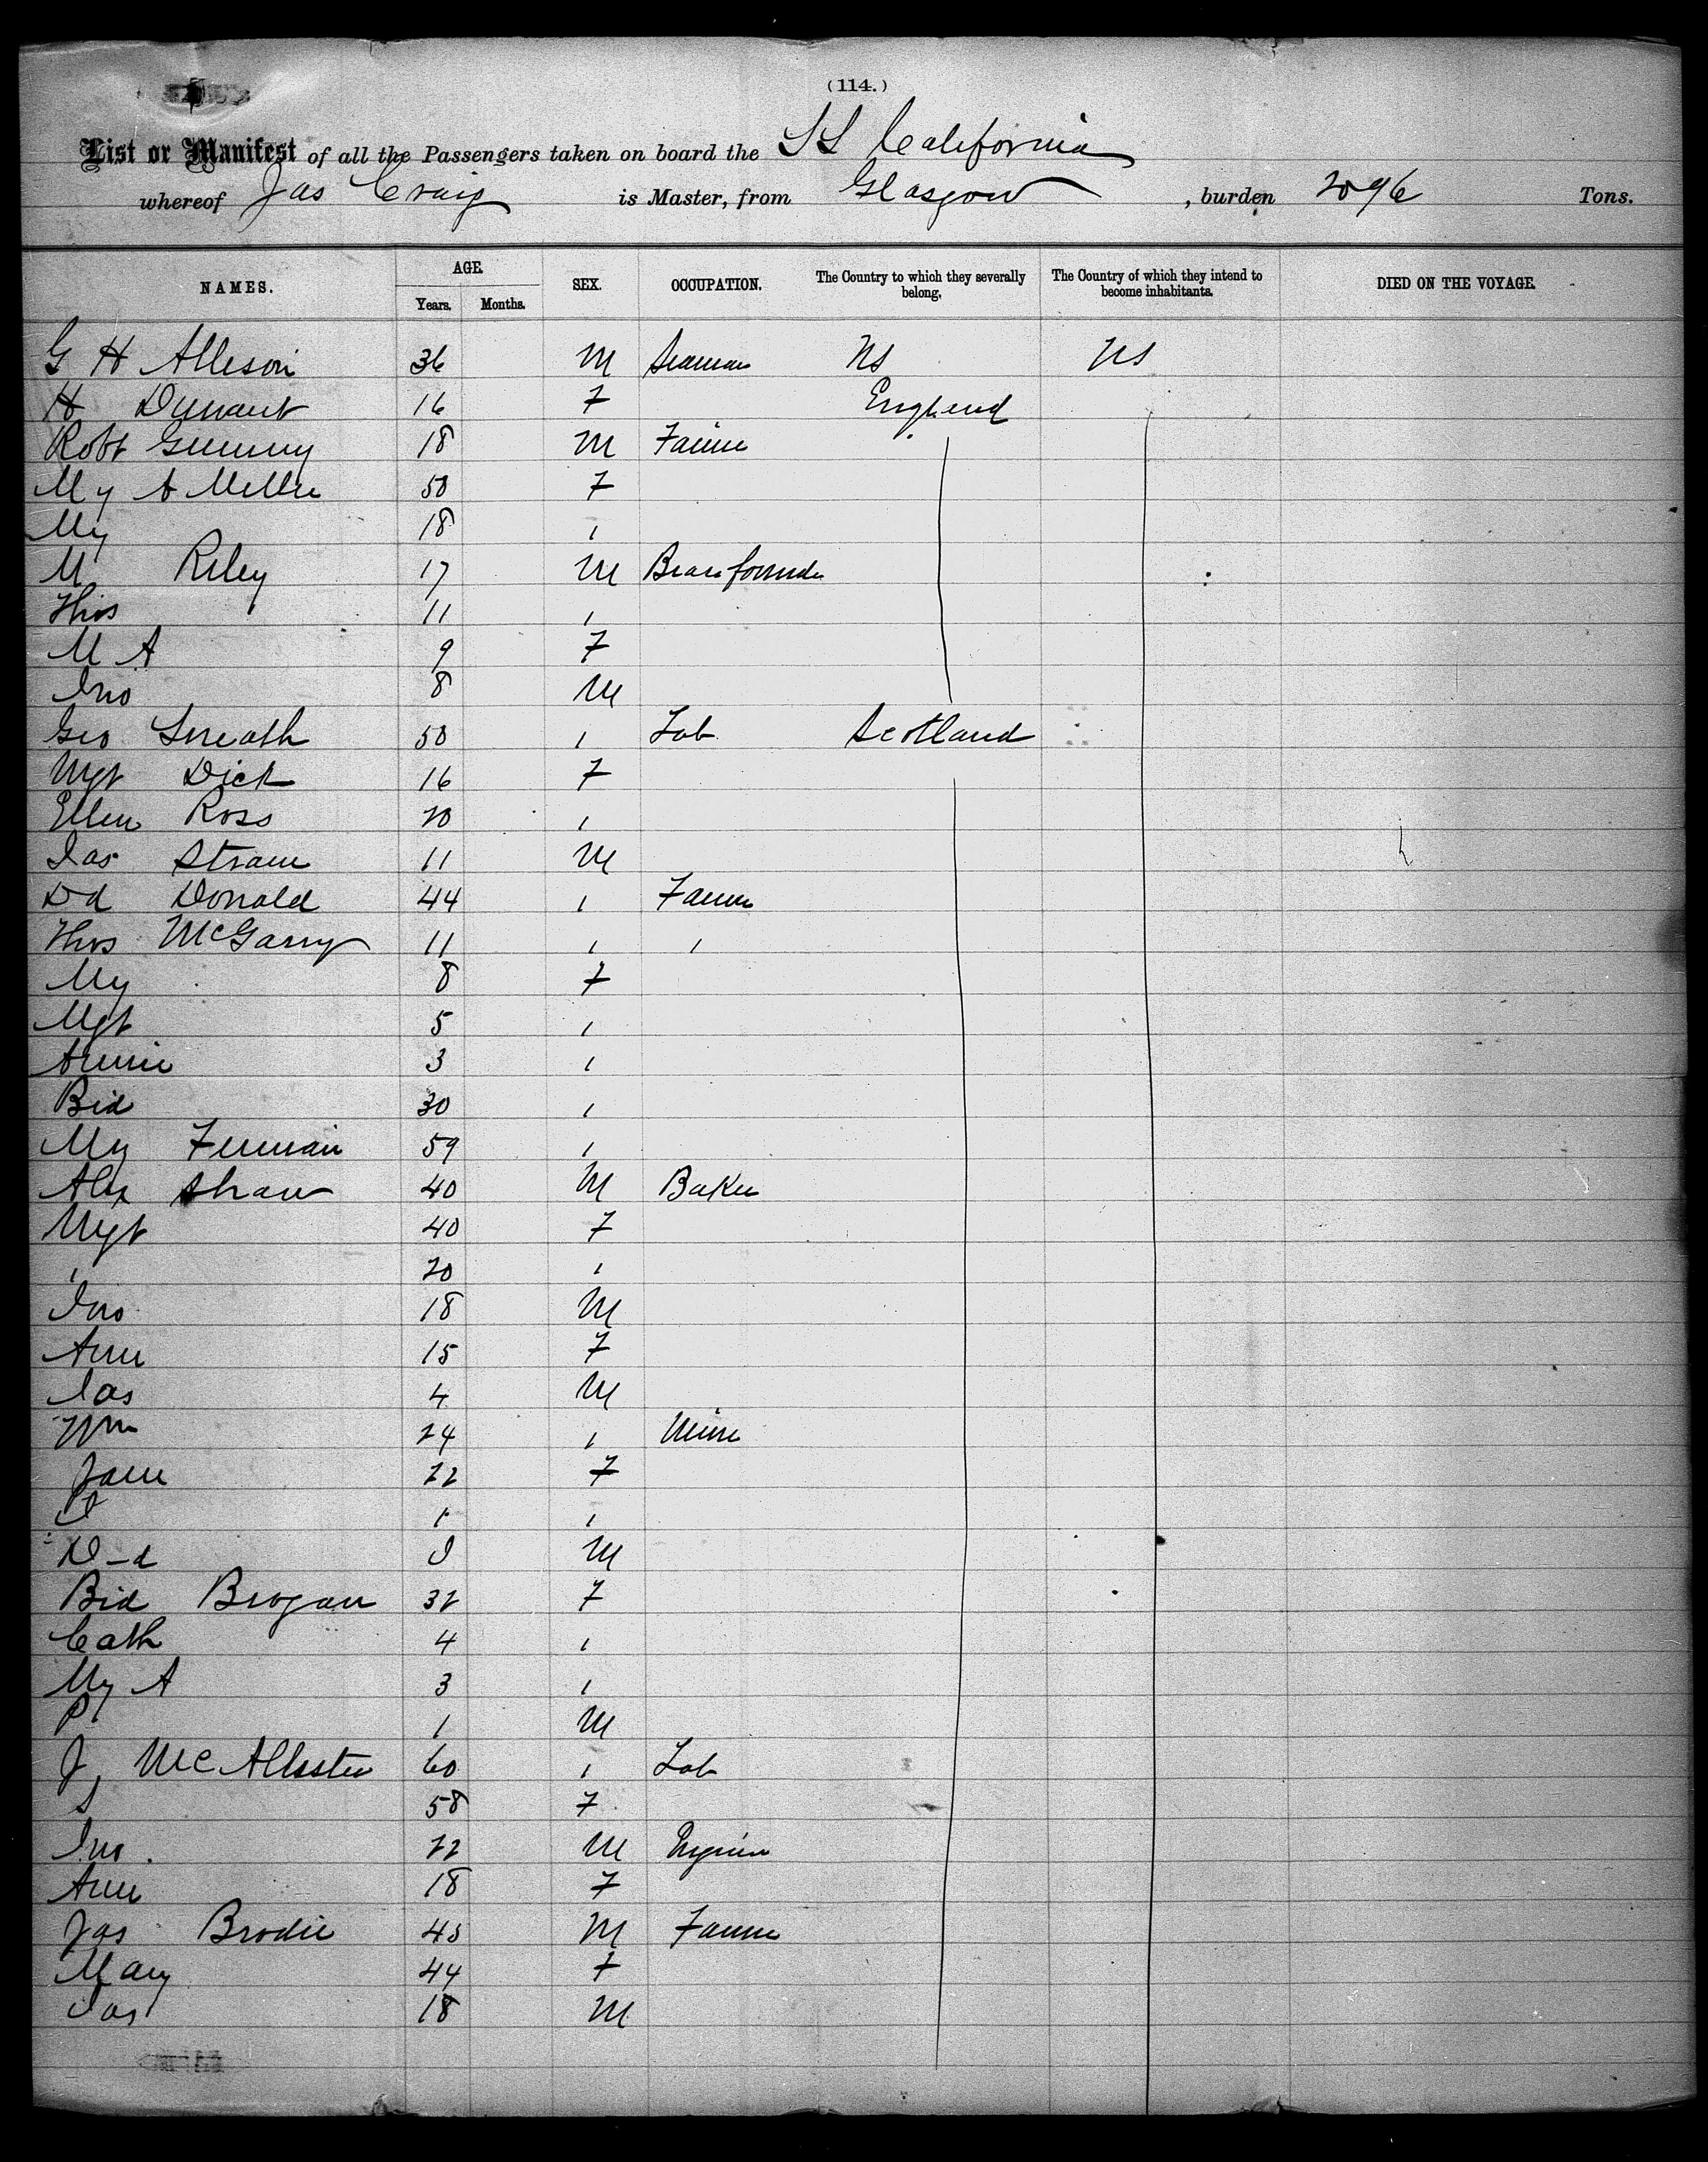 (114.)
List or Manifest of all the Passengers taken on board the SS California
whereof Jas Craig is Master, from Glasgow , burden 2096 Tons.
NAMES. AGE. SEX. OCCUPATION. The Country to which they severally belong. The Country of which they intend to become inhabitants. DIED ON THE VOYAGE.
Years. Months.
G H Allison 36 M Seaman US US
H Durrant 16 F England
Robt 18 M Farmer
My A 50 F
My 18 "
M Riley 17 M Brassfounder
Thos 11 "
M A 9 F
Jno 8 M
Geo 50 " Lab Scotland
Mgt Dick 16 F
Ellen Ross 20 "
Jas 11 M
Dd Donald 44 " Farmer
Thos McGarry 11 " "
My 8 F
Mgt 5 "
Annie 3 "
Bid 30 "
My 59 "
Alex Shaw 40 M Baker
Mgt 40 F
" 20 "
Jno 18 M
Ann 15 F
Jas 4 M
Wm 24 " Miner
Jane 22 F
1 "
D-d 0 M
Bid Brogan 32 F
Cath 4 "
My A 3 "
P 1 M
J McAllister 60 " Lab
S 58 F
Jno. 22 M Engineer
Ann 18 F
Jas Brodie 45 M Farmer
Mary 44 F
Jas 18 M